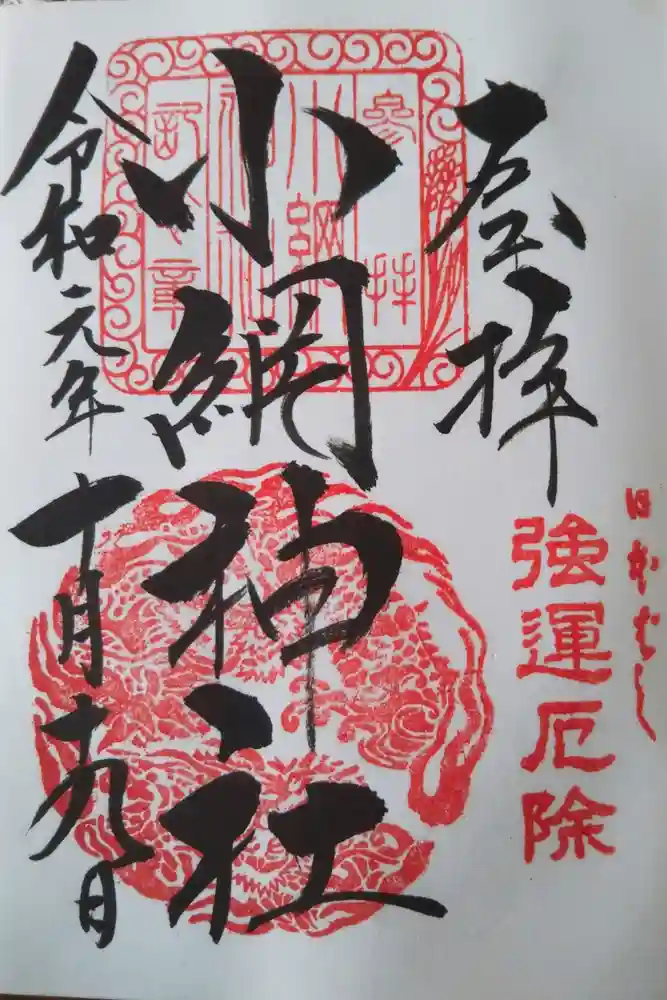 日本ばし
強運厄除
奉拝
小網神社
令和元年十月十九日
參拝
小網
神社
記念章